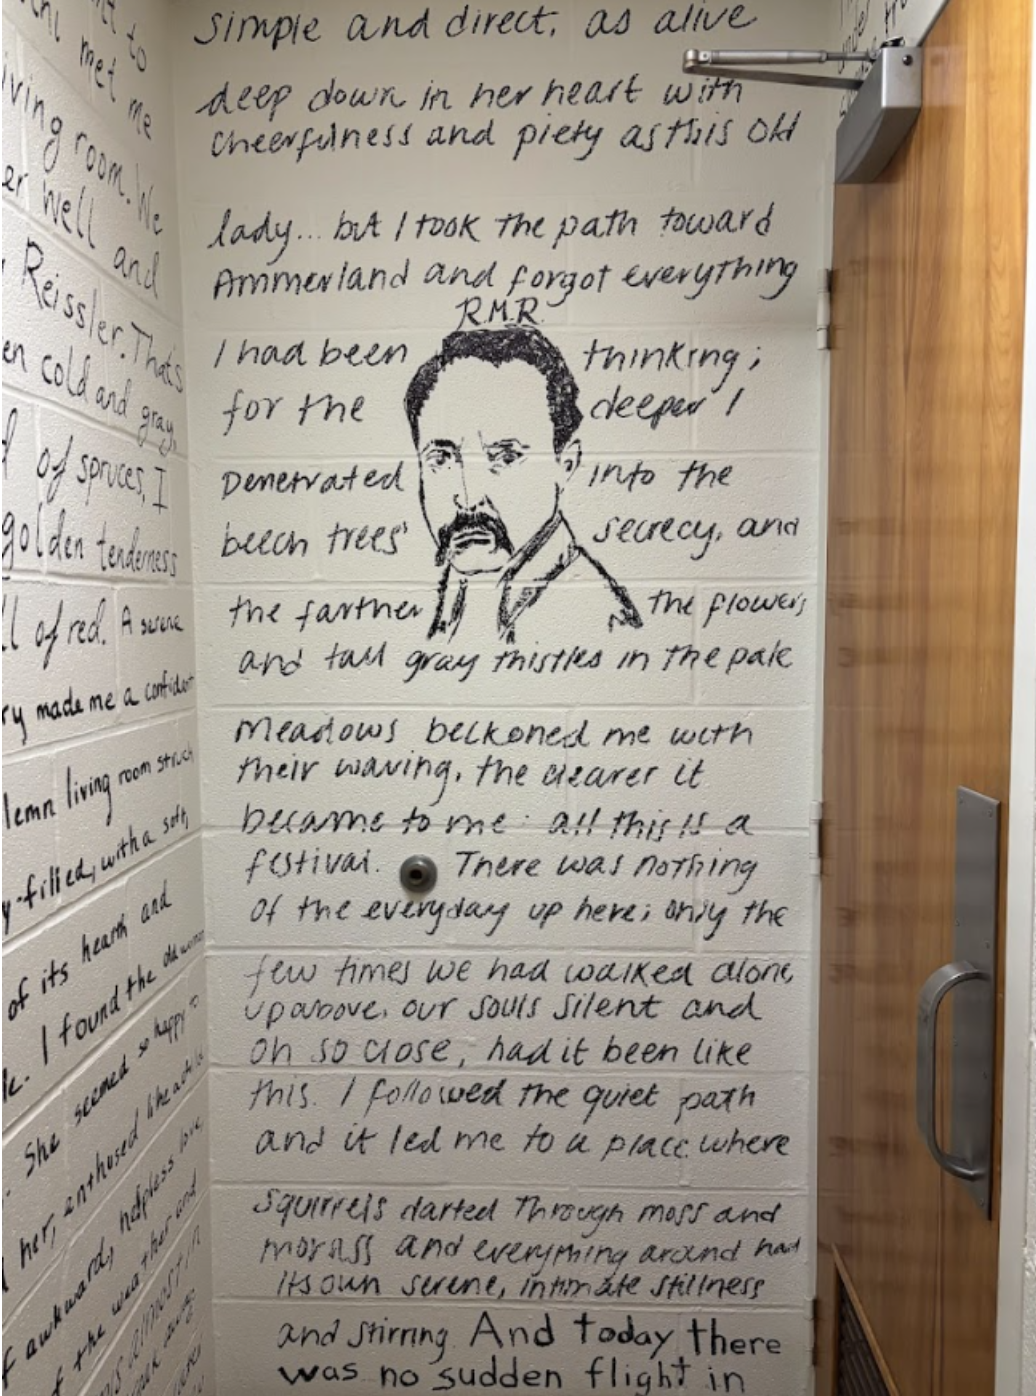 simple and direct, as alive
deep down in her heart with
cheerfulness and piety as this old
lady... but I took the path toward
Ammerland and forgot everything
R.M.R.
I had been thinking;
for the deeper I
penetrated into the
beech trees' secrecy, and
the farther the flowers
and tall gray thistles in the pale
meadows beckoned me with
their waving, the clearer it
became to me: all this is a
festival. There was nothing
of the everyday up here; only the
few times we had walked alone
up above, our souls silent and
oh so close, had it been like
this. I followed the quiet path
and it led me to a place where
squirrels darted through moss and
morass and everything around had
its own serene, intimate stillness
and stirring. And today there
was no sudden flight in
to
met me
living room. We
er well and
Reissler. That's
en cold and gray,
of spruces, I
golden tenderness
ll of red. A serene
ry made me a confident
lemn living room struck
y-filled, with a soft,
of its hearth and
I found the old woman
She seemed so happy to
her, enthused like a
f awkward, helpless love
f the weather and
almost in